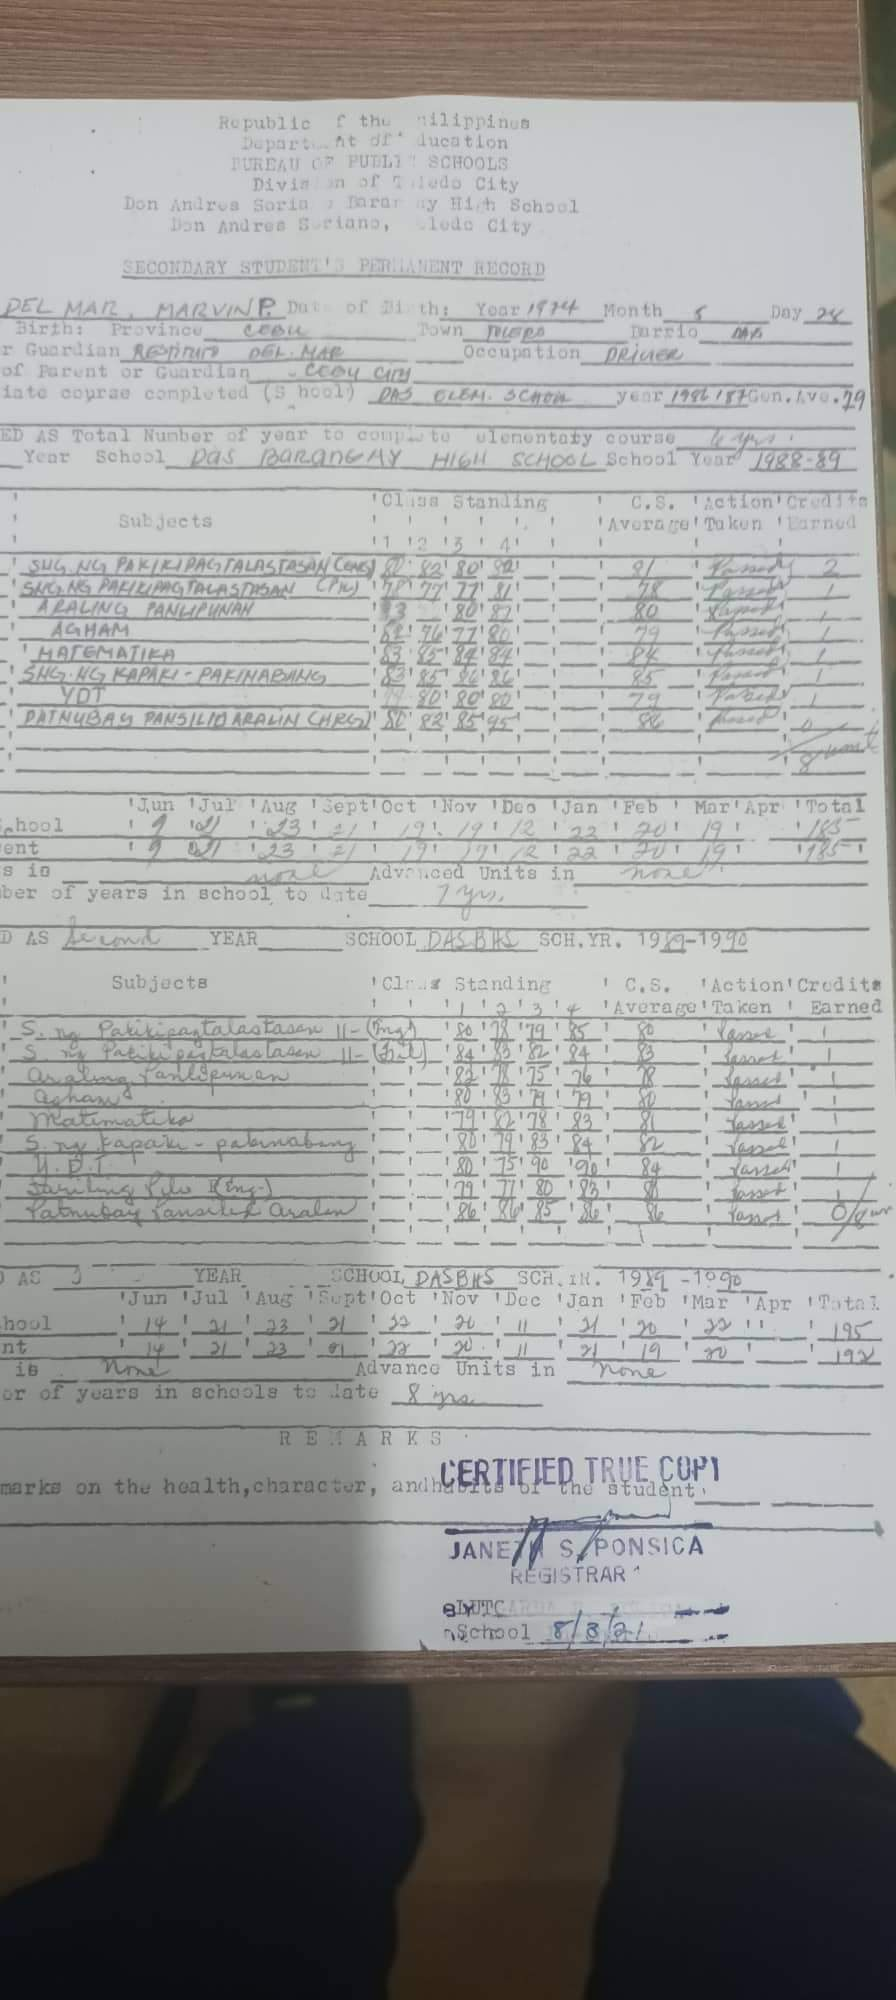 Republic f the ilippines
Depart nt of ducation
BUREAU OF PUBLI SCHOOLS
Divis n of T ledo City
Don Andres Soria Baran y High School
Don Andres Soriano, oledo City
SECONDARY STUDENT'S PERMANENT RECORD
DEL MAR, MARVIN P. Date of Birth: Year 1974 Month 5 Day 28
Birth: Province CEBU Town TOLEDO Barrio DAS
r Guardian RESTITUTO DEL MAR Occupation DRIVER
of Parent or Guardian CEBU CITY
iate course completed (S hool) DAS ELEM. SCHOOL year 1986 '87 Gen. Ave. 79
ED AS Total Number of year to complete elementary course 6 yrs.
Year School DAS BARANGAY HIGH SCHOOL School Year 1988-89
Class Standing C.S. Action Credits
Subjects 1 2 3 4 Average Taken Earned
SNG NG PAKIKIPAGTALASTASAN (ENG) 80 82 80 82 81 Passed 2
SNG NG PAKIKIPAGTALASTASAN (PIL) 77 77 81 78 Passed 1
ARALING PANLIPUNAN 80 87 80 Passed 1
AGHAM 76 77 80 79 Passed 1
MATEMATIKA 83 85 84 84 84 Passed 1
SNG NG KAPAKI-PAKINABANG 83 85 86 86 85 Passed 1
YDT 80 80 80 79 Passed 1
PATNUBAY PANSILID ARALIN (HRG) 80 82 85 95 86 Passed 0
8 unit
Jun Jul Aug Sept Oct Nov Dec Jan Feb Mar Apr Total
School 9 21 23 21 19 19 12 22 20 19 185
ent 9 21 23 21 19 19 12 22 20 19 185
s is none Advanced Units in none
ber of years in school to date 7 yrs.
D AS Second YEAR SCHOOL DASBHS SCH.YR. 1989-1990
Subjects Class Standing C.S. Action Credits
1 2 3 4 Average Taken Earned
S. ng Pakikipagtalastasan II-(Eng) 80 78 79 85 80 Passed 1
S. ng Pakikipagtalastasan II-(Fil) 84 83 82 84 83 Passed 1
Araling Panlipunan 82 78 75 76 78 Passed 1
Agham 80 83 79 79 80 Passed 1
Matematika 79 82 78 83 81 Passed 1
S. ng kapaki-pakinabang 80 79 83 84 82 Passed 1
Y.D.T. 80 75 90 90 84 Passed 1
79 77 80 83 Passed 1
Patnubay Pansilid Aralin 86 86 85 86 86 Passed 0/8 un
D AS YEAR SCHOOL DASBHS SCH.YR. 1989-1990
Jun Jul Aug Sept Oct Nov Dec Jan Feb Mar Apr Total
hool 14 21 23 21 22 20 11 21 20 22 195
nt 14 21 23 21 22 20 11 21 19 20 192
is None Advance Units in none
or of years in schools to date 8 yrs
REMARKS
CERTIFIED TRUE COPY
marks on the health, character, and habits of the student.
JANETH S. PONSICA
REGISTRAR
BY LUTGARDA
School 8/3/21